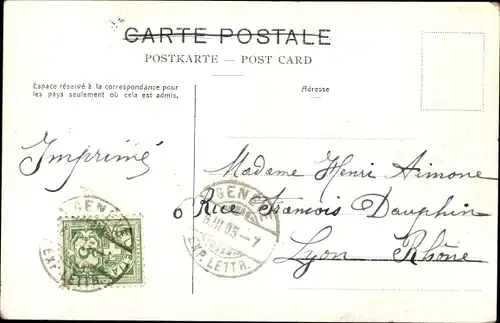 CARTE POSTALE
POSTKARTE — POST CARD
Espace réservé à la correspondance pour
les pays seulement où cela est admis.
Adresse
Imprimé
Madame Henri Aimone
6 Rue Francois Dauphin
Lyon Rhône
GENÈVE
III 05 - 7
EXP. LETTR.
GENÈVE
EXP. LETTR.
5